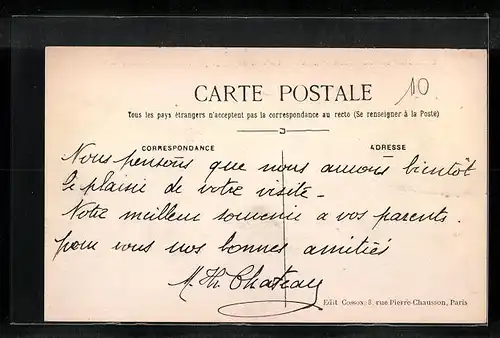 10
CARTE POSTALE
Tous les pays étrangers n'acceptent pas la correspondance au recto (Se renseigner à la Poste)
CORRESPONDANCE ADRESSE
Nous pensons que nous aurons bientôt
le plaisir de votre visite -
Notre meilleur souvenir à vos parents.
pour vous nos bonnes amitiés
M. Th. Chateau
Edit Cosson 3, rue Pierre-Chausson, Paris